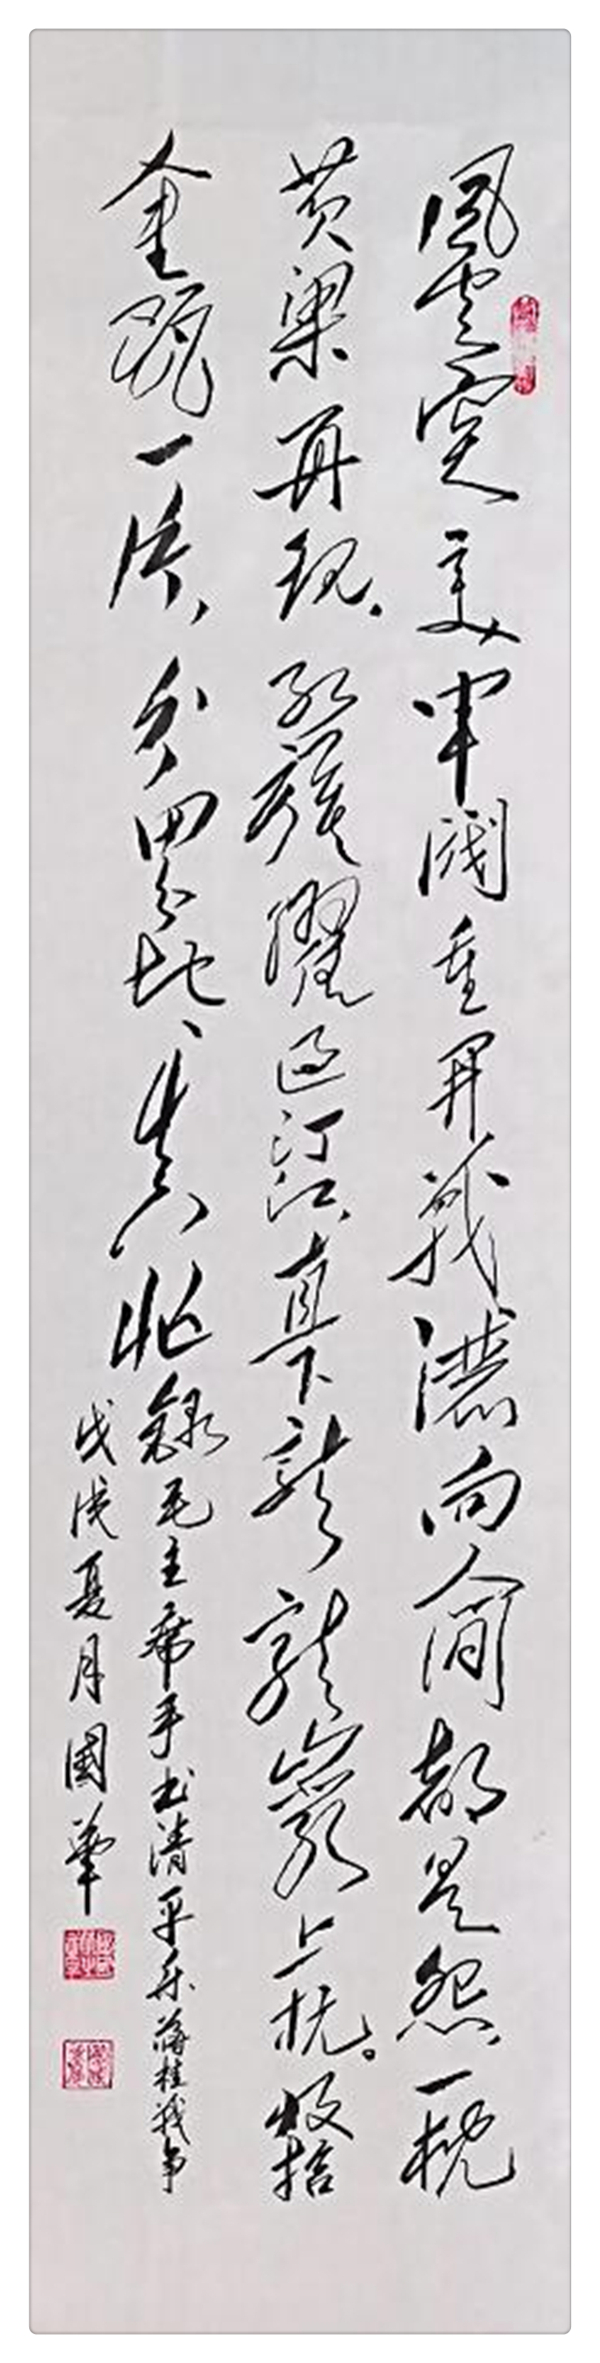 風雲突变軍閥重開戰灑向人间都是怨、一枕
黄粱再現。红旗躍過汀江、直下龍龍巖上杭。收拾
金甌一片、分田分地、真忙
錄毛主席手书清平乐蒋桂战争
戊戌夏月國華